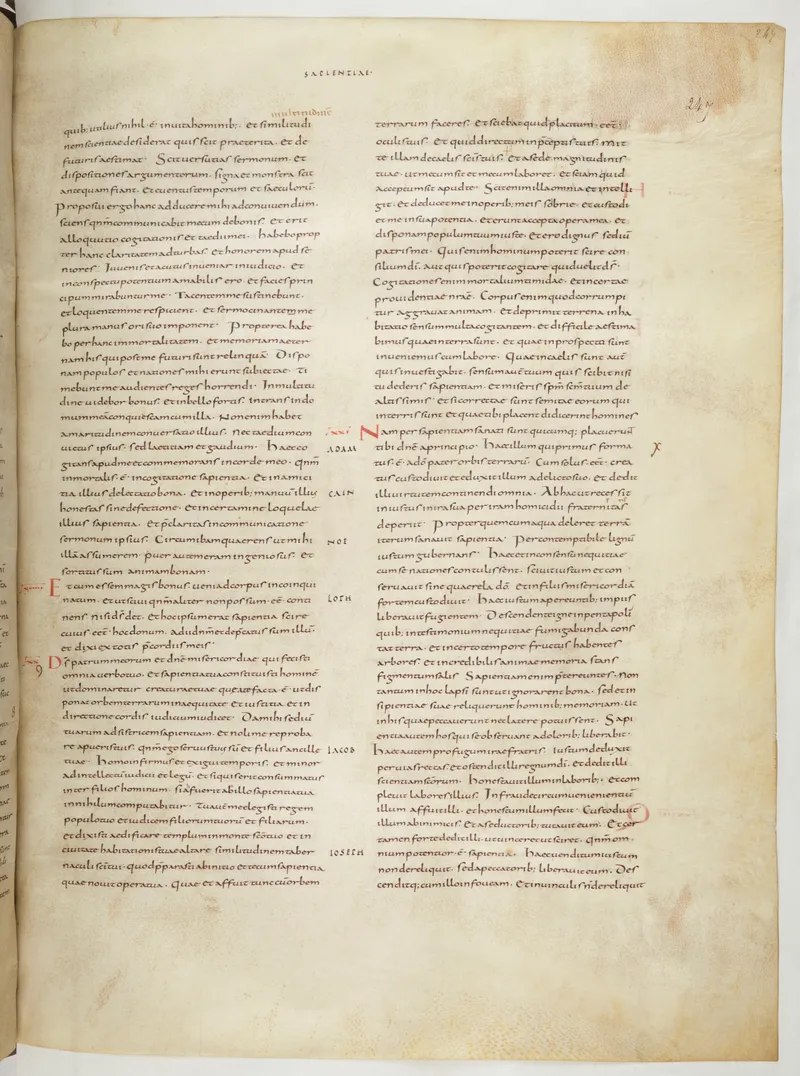 SAPIENTIAE·
249
multitudinē
quib; utilius nihil· ē· in uita hominib;· Et si militudi
nem scientiae desiderat quis scit praeterita· et de
futuris aestimat· Scit uersutias sermonum· et
dispositiones argumentorum· signa et monstra scit
antequam fiant· Et euentus temporum et saeculorū·
Proposui ergo hanc adducere mihi ad conuiuendum·
sciens qnm communicabit mecum de bonis· et erit
alloquutio cogitationis et taedii mei· habebo prop
ter hanc claritatem ad turbas· et honorem apud se
niores· Iuuenis et acutus inueniar in iudicio· et
in conspectu potentium amabilis ero· et facies prin
cipum mirabuntur me· Tacentem me sustinebunt·
et loquentem me respicient· et sermocinantem me
plura manus ori suo imponent· Propterea habe
bo per hanc immortalitatem· et memoriam aeter
nam his qui post me futuri sunt relinquā· Dispo
nam populos et nationes mihi erunt subiectae· Ti
mebunt me audientes reges horrendi· In multitu
dine uidebor bonus· et in bello fortis· intrans in do
mum meam conquiescam cum illa· Non enim habet
amaritudinem conuersatio illius· nec taedium con
uictus ipsius· sed laetitiam et gaudium· Haec co
gitans apud me et commemorans in corde meo· qnm
inmortalis· ē· in cogitatione sapientia· et in amici
tia illius delectatio bona· et in operib; manuū illius
honestas sine defectione· et in certamine loquelae
illius sapientia· et p̄claritas in communicatione
sermonum ipsius· Circuibam quaerens ut mihi
illā assumerem· puer autem eram ingeniosus· et
sortitus sum animam bonam·
Et cum essem magis bonus ueni ad corpus incoinqui
natum· et ut sciui qnm aliter non possum· eē· conti
nens nisi ds det· et hoc ipsum erat sapientia scire
cuius eēt hoc donum· adii dnm et dep̄catus sum illū·
et dixi ex totis p̄cordiis meis·
Ds patrum meorum et dnē misericordiae qui fecisti
omnia uerbo tuo· et sapientia tua constituisti hominē
ut dominaretur creaturae tuae quae a te facta· ē· ut dis
ponat orbem terrarum in aequitate et iustitia· et in
directione cordis iudicium iudicet· Da mihi sediū
tuarum adsistricem sapientiam· et noli me reproba
re a pueris tuis· qnm ego seruus tuus sū et filius ancille
tuae· homo infirmus et exigui temporis· et minor
ad intellectū iudicii et legū· et si quis erit consummatus
inter filios hominum· si afuerit ab illo sapientia tua
in nihilum computabitur· Tu autē me elegisti regem
populo tuo et iudicem filiorum tuorū et filiarum·
et dixisti aedificare templum in monte sco tuo et in
ciuitate habitationis tuae altare similitudinem taber
naculi sci tui· quod p̄parasti ab initio et tecum sapientia
quae nouit opera tua· Quae et affuit tunc cū orbem
terrarum faceres· et sciebat quid placitum· eēt
oculis tuis· et quid directum in p̄ceptis tuis· mit
te illam de caelis scis tuis· et a sede magnitudinis
tuae· ut mecum sit et mecum laboret· et sciam quid
acceptum sit apud te· Scit enim illa omnia et intelli
git· et deducet me in operib; meis sobrie· et custodi
et me in sua potentia· et erunt accepta opera mea· et
disponam populum tuum iuste· et ero dignus sediū
patris mei· Quis enim hominum poterit scire con
silium di· aut quis poterit cogitare quid uelit ds·
Cogitationes enim mortalium timidae· et incertae
prouidentiae nrae· Corpus enim quod corrumpi
tur aggrauat animam· et deprimit terrena inha
bitatio sensum multa cogitantem· et difficile aestima
bimus quae in terra sunt· et quae in prospectu sunt
inuenimus cum labore· Quae in caelis sunt autē
quis inuestigabit· sensum autē tuum quis sciet nisi
tu dederis sapientiam· et miseris spm scm tuum de
altissimis· et si correctae sunt semitae eorum qui
in terris sunt et quae tibi placent didicerint homines
XXI
Nam per sapientiam sanati sunt quicumq; placuerūt
ADAM
tibi dnē a principio· Haec illum qui primus forma
tus· ē· a do pater orbis terrarū· Cum solus eēt· crea
tus custodiuit et eduxit illum a delicto suo· et dedit
CAIN
illi uirtutem continendi omnia· Ab hac ut recessit
iniustus in ira sua per iram homicidii fraternitas
deperiit· Propter quem cum aqua deleret terrā
NOE
iterum sanauit sapientia· Per contemptibile lignū
iustum gubernans· Haec et in consensu nequitiae
cum se nationes contulissent· sciuit iustum et con
seruauit sine quaerela do· et in filiis misericordiā
LOTH
fortem custodiuit· Haec iustum a pereuntib; impiis
liberauit fugientem· Descendente igne in pentapolī
quib; in testimonium nequitiae fumigabunda cons
tat terra· et incerto tempore fructus habentes
arbores· et incredibilis animae memoria stans
figmentum salis· Sapientiam enim p̄tereuntes· non
tantum in hoc lapsi sunt ut ignorarent bona· sed et in
sipientiae suae reliquerunt hominib; memoriam· ut
in his quae peccauerunt nec latere potuissent· Sapi
entia autem hos qui se obseruant a dolorib; liberabit·
JACOB
Haec autem profugum irae fratris· iustum deduxit
per uias rectas et ostendit illi regnum di· et dedit illi
scientiam scorum· honestauit illum in laborib;· et com
pleuit labores illius· In fraude circumuenientiū
illum affuit illi· et honestum illum fecit· Custodiuit
illum ab inimicis· et a seductorib; tutauit eum· Et cer
tamen forte dedit illi· ut uinceret et sciret· qnm om
IOSEPH
nium potentior· ē· sapientia· Haec uenditum iustum
non dereliquit· sed a peccatorib; liberauit eum· Des
cenditq; cum illo in foueam· et in uinculis n̄ dereliquit